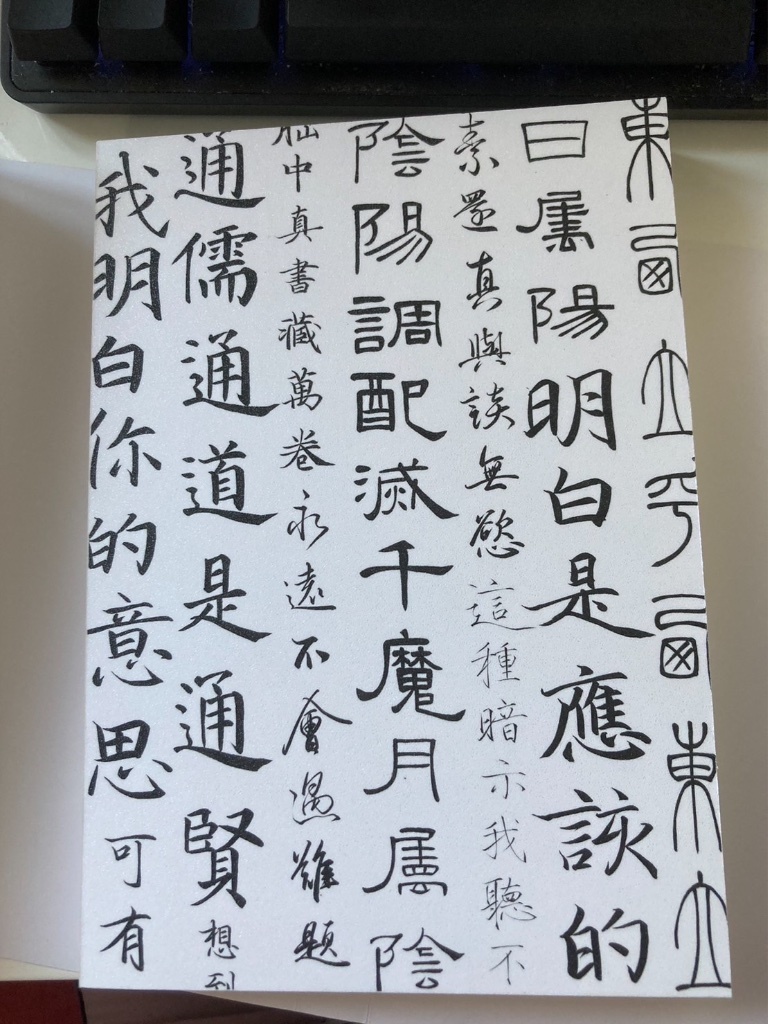 東西立平西東立
日屬陽明白是應該的
素還真與談無慾這種暗示我聽不
陰陽調配滅千魔月屬陰
中真書藏萬卷永遠不會遇難題
通儒通道是通賢想到
我明白你的意思可有